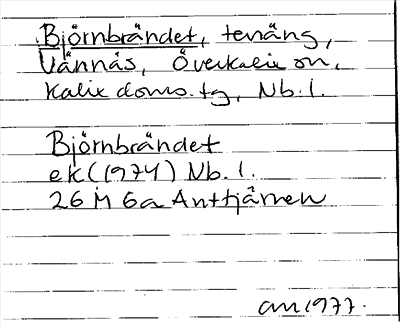 Björnbrändet, tenäng,
Vännäs, Överkalix sn,
Kalix doms.tg, Nb. l.
Björnbrändet
ek (1974) Nb. l.
26 M 6a Anttjärnen
am 1977.